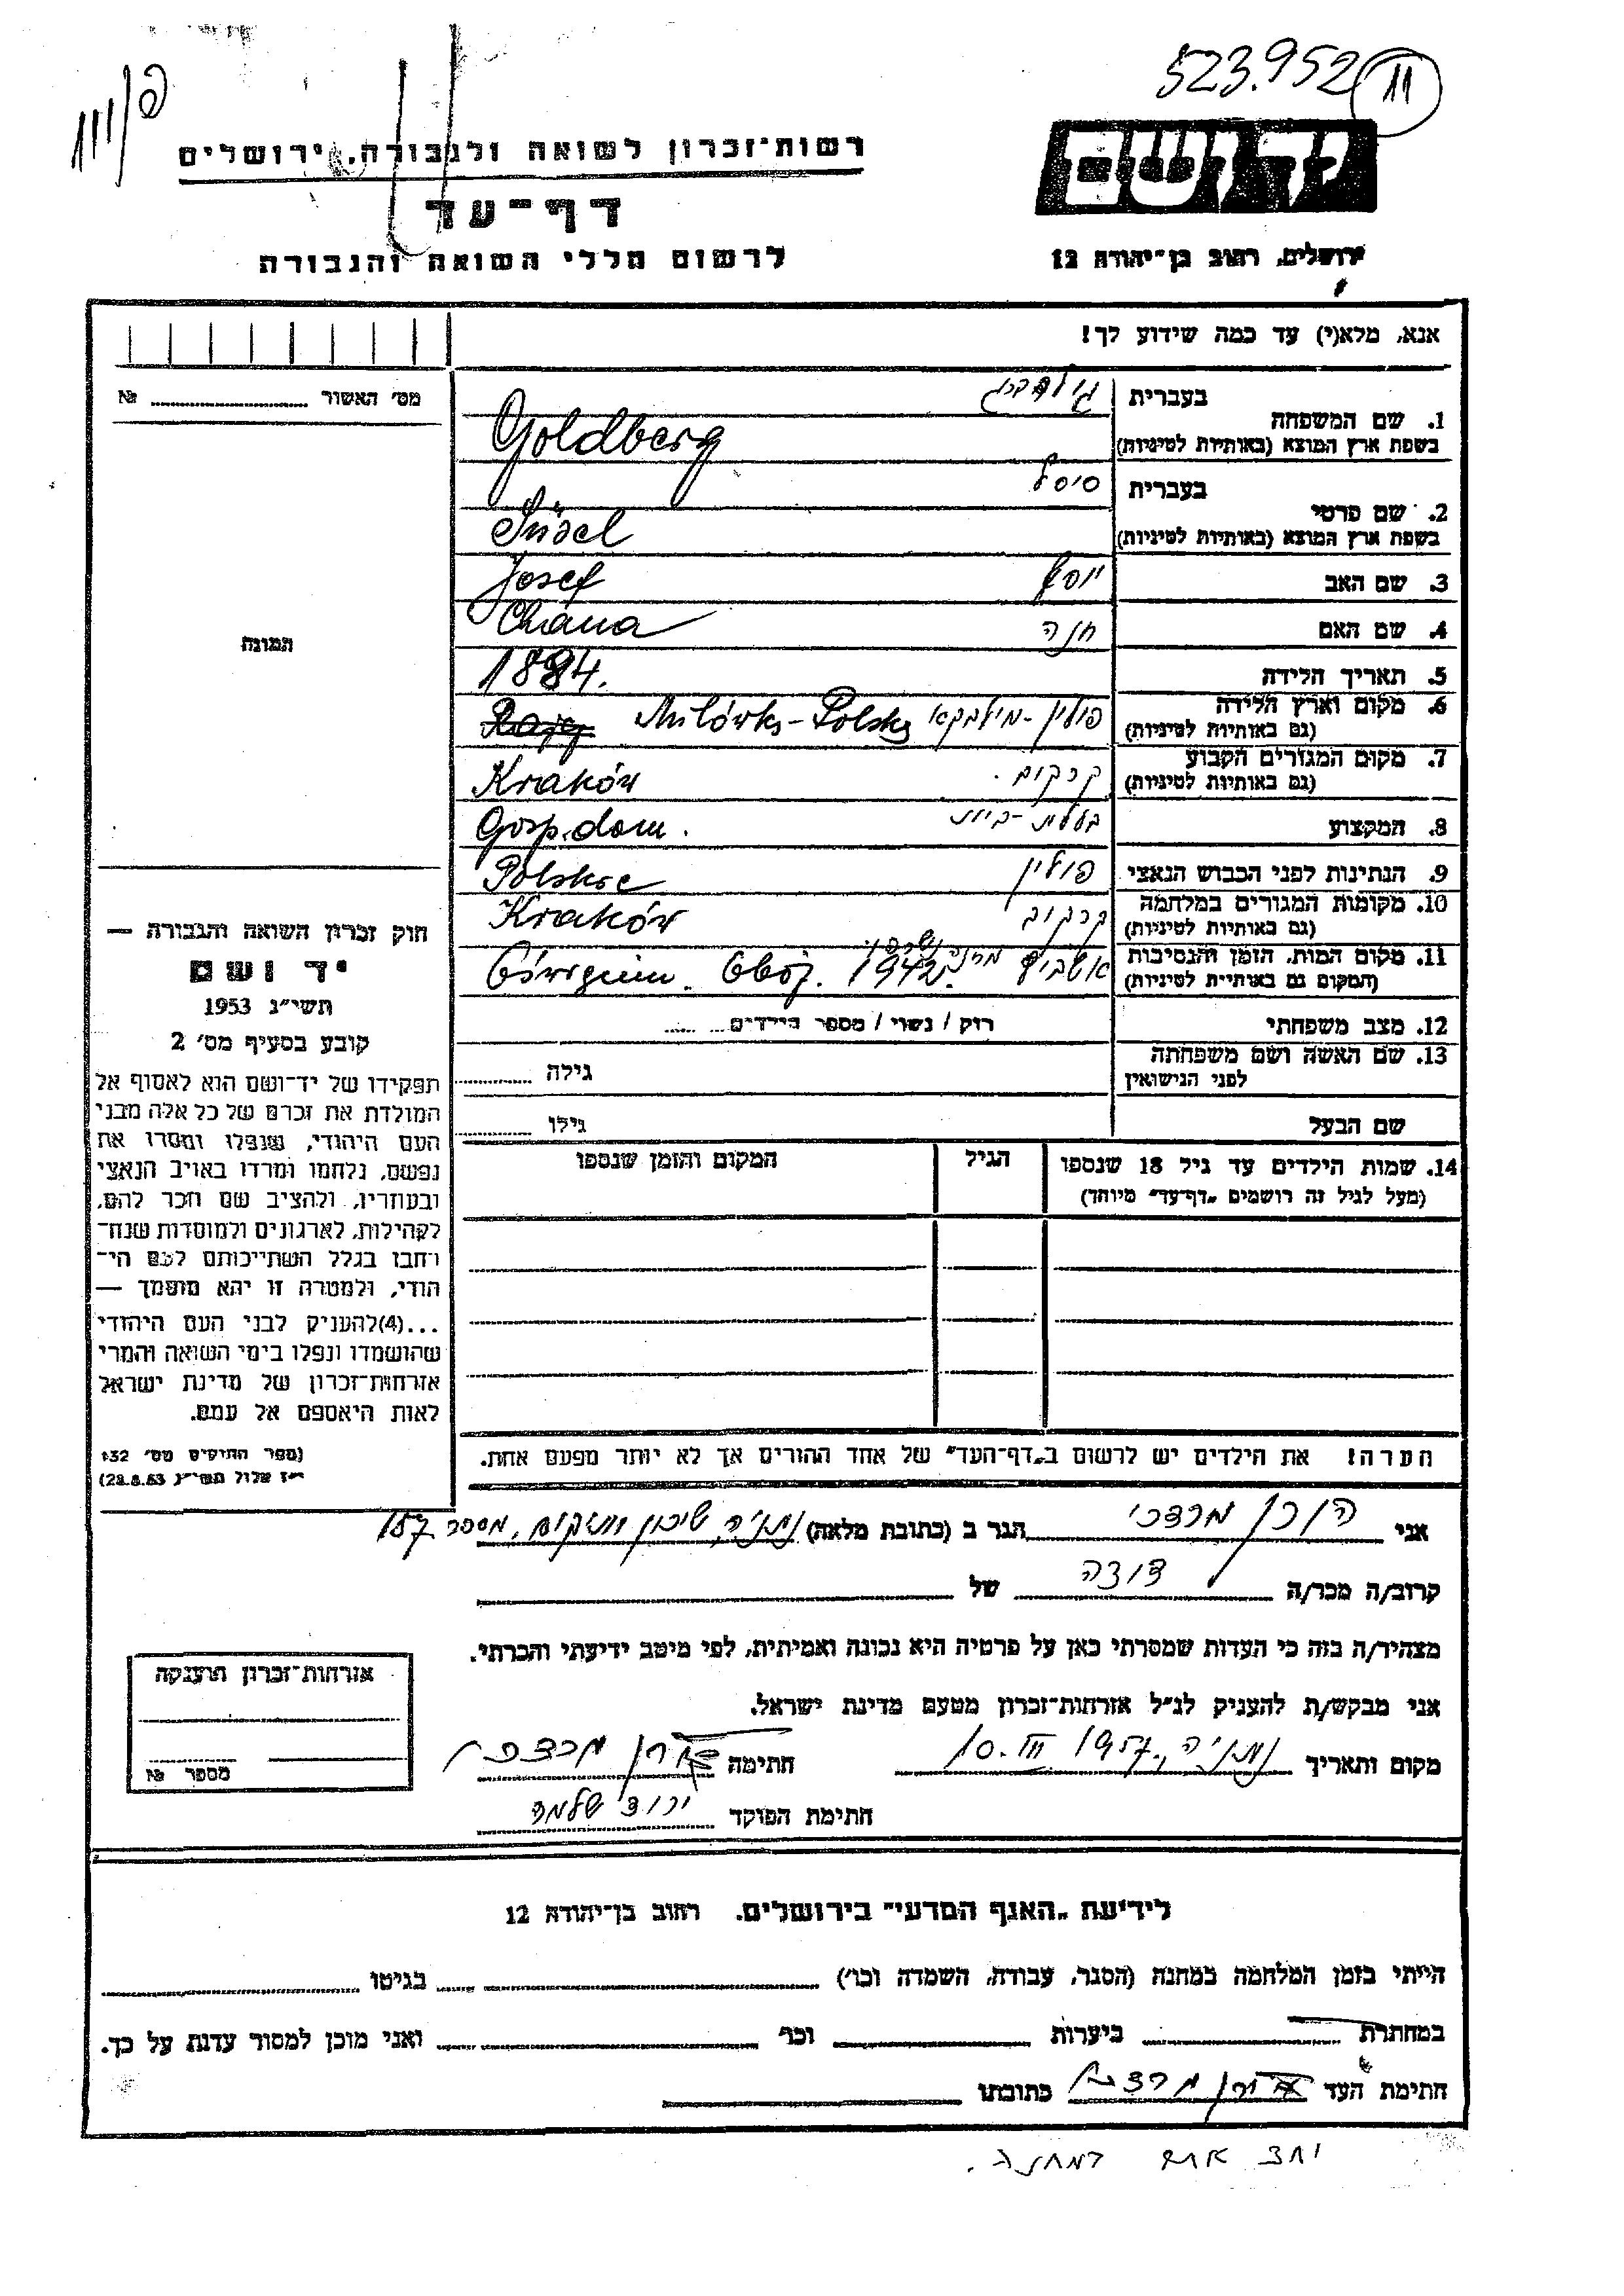 523.952
11
רשות־זכרון לשואה ולגבורה, ירושלים
יד ושם
דף־עד
לרשום חללי השואה והגבורה
ירושלים, רחוב בן־יהודה 12
אנא, מלא(י) עד כמה שידוע לך!
מס׳ האשור № 
1. שם המשפחה
בעברית גולדברג
בשפת ארץ המוצא (באותיות לטיניות) Goldberg
2. שם פרטי
בעברית סיסל
בשפת ארץ המוצא (באותיות לטיניות) Süsel
3. שם האב יוסף Josef
4. שם האם חנה Chana
5. תאריך הלידה 1884.
6. מקום וארץ הלידה פולין - מילבקא Milówka - Polska
(גם באותיות לטיניות)
7. מקום המגורים הקבוע קרקוב. Kraków
(גם באותיות לטיניות)
8. המקצוע בעלת-בית Gosp. dom.
9. הנתינות לפני הכבוש הנאצי פולין Polskie
10. מקומות המגורים במלחמה קרקוב Kraków
(גם באותיות לטיניות)
11. מקום המות, הזמן והנסיבות אושביץ 1942. Obóz.
(המקום גם באותיות לטיניות)
12. מצב משפחתי רוק / נשוי / מספר הילדים
13. שם האשה ושם משפחתה גילה
לפני הנישואין
שם הבעל גילו
14. שמות הילדים עד גיל 18 שנספו הגיל המקום והזמן שנספו
(מעל לגיל זה רושמים „דף־עד״ מיוחד)
הערה! את הילדים יש לרשום ב„דף־העד״ של אחד ההורים אך לא יותר מפעם אחת.
התמונה
חוק זכרון השואה והגבורה —
יד ושם
תשי״ג 1953
קובע בסעיף מס׳ 2
תפקידו של יד־ושם הוא לאסוף אל
המולדת את זכרם של כל אלה מבני
העם היהודי, שנפלו ומסרו את
נפשם, נלחמו ומרדו באויב הנאצי
ובעוזריו, ולהציב שם וזכר להם,
לקהילות, לארגונים ולמוסדות שנח־
רבו בגלל השתייכותם לעם הי־
הודי, ולמטרה זו יהא מוסמך —
...(4) להעניק לבני העם היהודי
שהושמדו ונפלו בימי השואה והמרי
אזרחות־זכרון של מדינת ישראל
לאות היאספם אל עמם.
(ספר החוקים מס׳ 132
י״ז אלול תשי״ג 28.8.53)
אני הורן מרדכי הגר ב (כתובת מלאה) נתניה, שיכון ותיקים, מספר 157
קרוב/ה מכר/ה דודה של
מצהיר/ה בזה כי העדות שמסרתי כאן על פרטיה היא נכונה ואמיתית, לפי מיטב ידיעתי והכרתי.
אני מבקש/ת להעניק לנ״ל אזרחות־זכרון מטעם מדינת ישראל.
מקום ותאריך נתניה, 10.III 1957 חתימה הורן מרדכי
חתימת הפוקד שלמה
אזרחות־זכרון הוענקה
מספר №
לידיעת „האגף המדעי״ בירושלים. רחוב בן־יהודה 12
הייתי בזמן המלחמה במחנה (הסגר, עבודה, השמדה וכו׳) בגיטו
במחתרת ביערות וכו׳ ואני מוכן למסור עדות על כך.
חתימת העד הורן מרדכי כתובתו